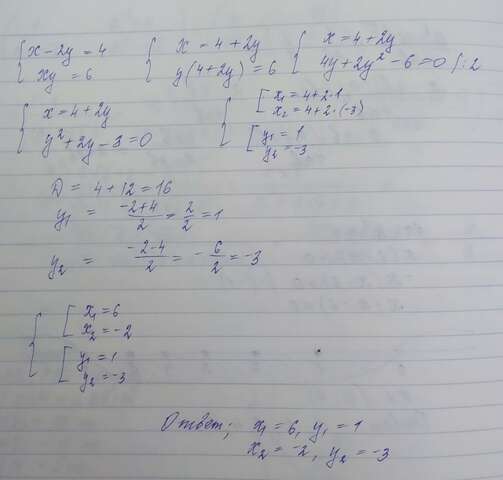 { x - 2y = 4
xy = 6
{ x = 4 + 2y
y(4 + 2y) = 6
{ x = 4 + 2y
4y + 2y² - 6 = 0 /:2
{ x = 4 + 2y
y² + 2y - 3 = 0
{ [ x₁ = 4 + 2·1
x₂ = 4 + 2·(-3)
[ y₁ = 1
y₂ = -3
D = 4 + 12 = 16
y₁ = (-2+4)/2 = 2/2 = 1
y₂ = (-2-4)/2 = -6/2 = -3
{ [ x₁ = 6
x₂ = -2
[ y₁ = 1
y₂ = -3
Ответ; x₁ = 6, y₁ = 1
x₂ = -2, y₂ = -3